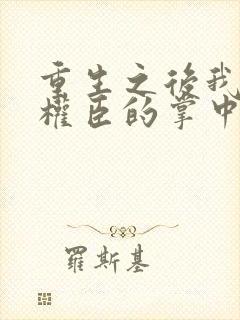 重生之後我
權臣的掌中
羅斯基